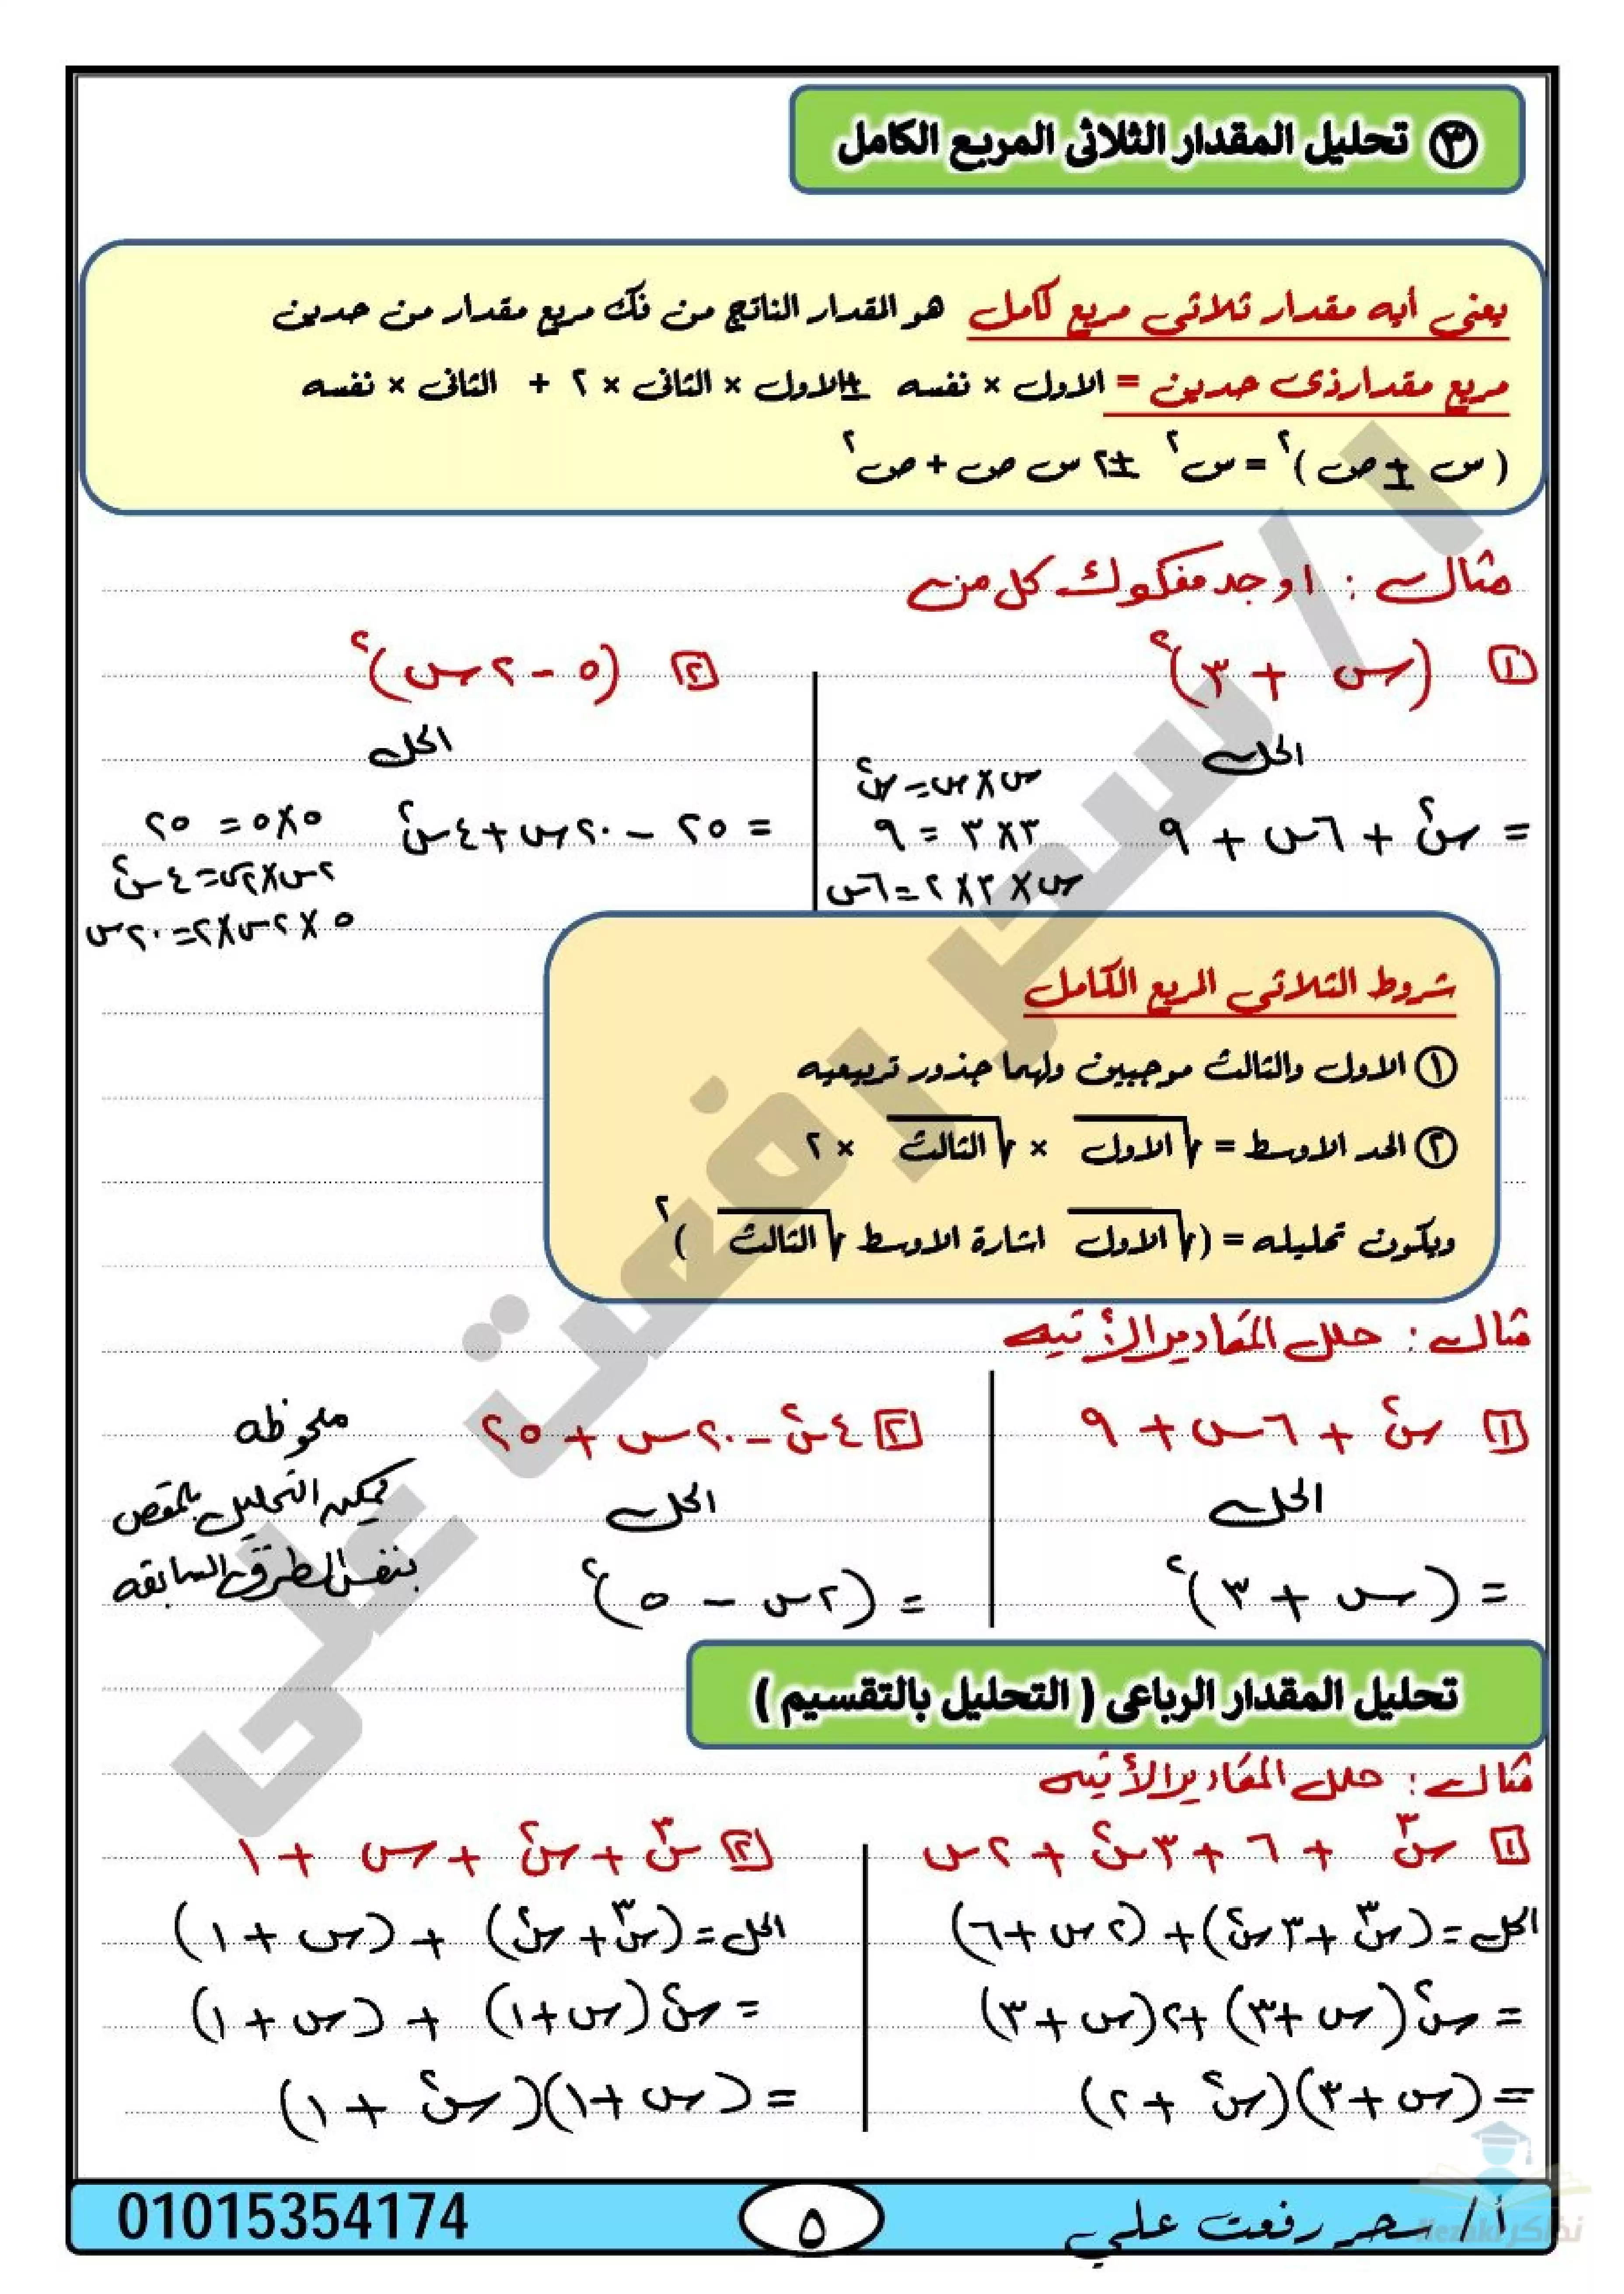 ٣ تحليل المقدار الثلاثى المربع الكامل
يعنى أيه مقدار ثلاثى مربع كامل هو المقدار الناتج من فك مربع مقدار من حدين
مربع مقدارذى حدين = الاول × نفسه ± الاول × الثانى × ٢ + الثانى × نفسه
( س ± ص )² = س² ± ٢ س ص + ص²
مثال : اوجد مفكوك كل من
١ (س + ٣)²
الحل
= س² + ٦س + ٩
س × س = س²
٣ × ٣ = ٩
س × ٣ × ٢ = ٦س
٢ (٥ - ٢س)²
الحل
= ٢٥ - ٢٠س + ٤س²
٥ × ٥ = ٢٥
٢س × ٢س = ٤س²
٥ × ٢س × ٢ = ٢٠س
شروط الثلاثى المربع الكامل
١ الاول والثالث موجبين ولهما جذور تربيعيه
٢ الحد الاوسط = √الاول × √الثالث × ٢
ويكون تحليله = (√الاول اشارة الاوسط √الثالث )²
مثال : حلل المقادير الأتيه
١ س² + ٦س + ٩
الحل
= (س + ٣)²
٢ ٤س² - ٢٠س + ٢٥
الحل
= (٢س - ٥)²
ملحوظه
يمكن التحليل بالمقص
بنفس الطرق السابقه
تحليل المقدار الرباعى ( التحليل بالتقسيم )
مثال : حلل المقادير الأتيه
١ س³ + ٦ + ٣س² + ٢س
الحل = (س³ + ٣س²) + (٢س + ٦)
= س²(س + ٣) + ٢(س + ٣)
= (س + ٣)(س² + ٢)
٢ س³ + س² + س + ١
الحل = (س³ + س²) + (س + ١)
= س²(س + ١) + (س + ١)
= (س + ١)(س² + ١)
أ/ سحر رفعت علي
٥
01015354174
ا/ سحر رفعت على
نذاكر
Nezakr